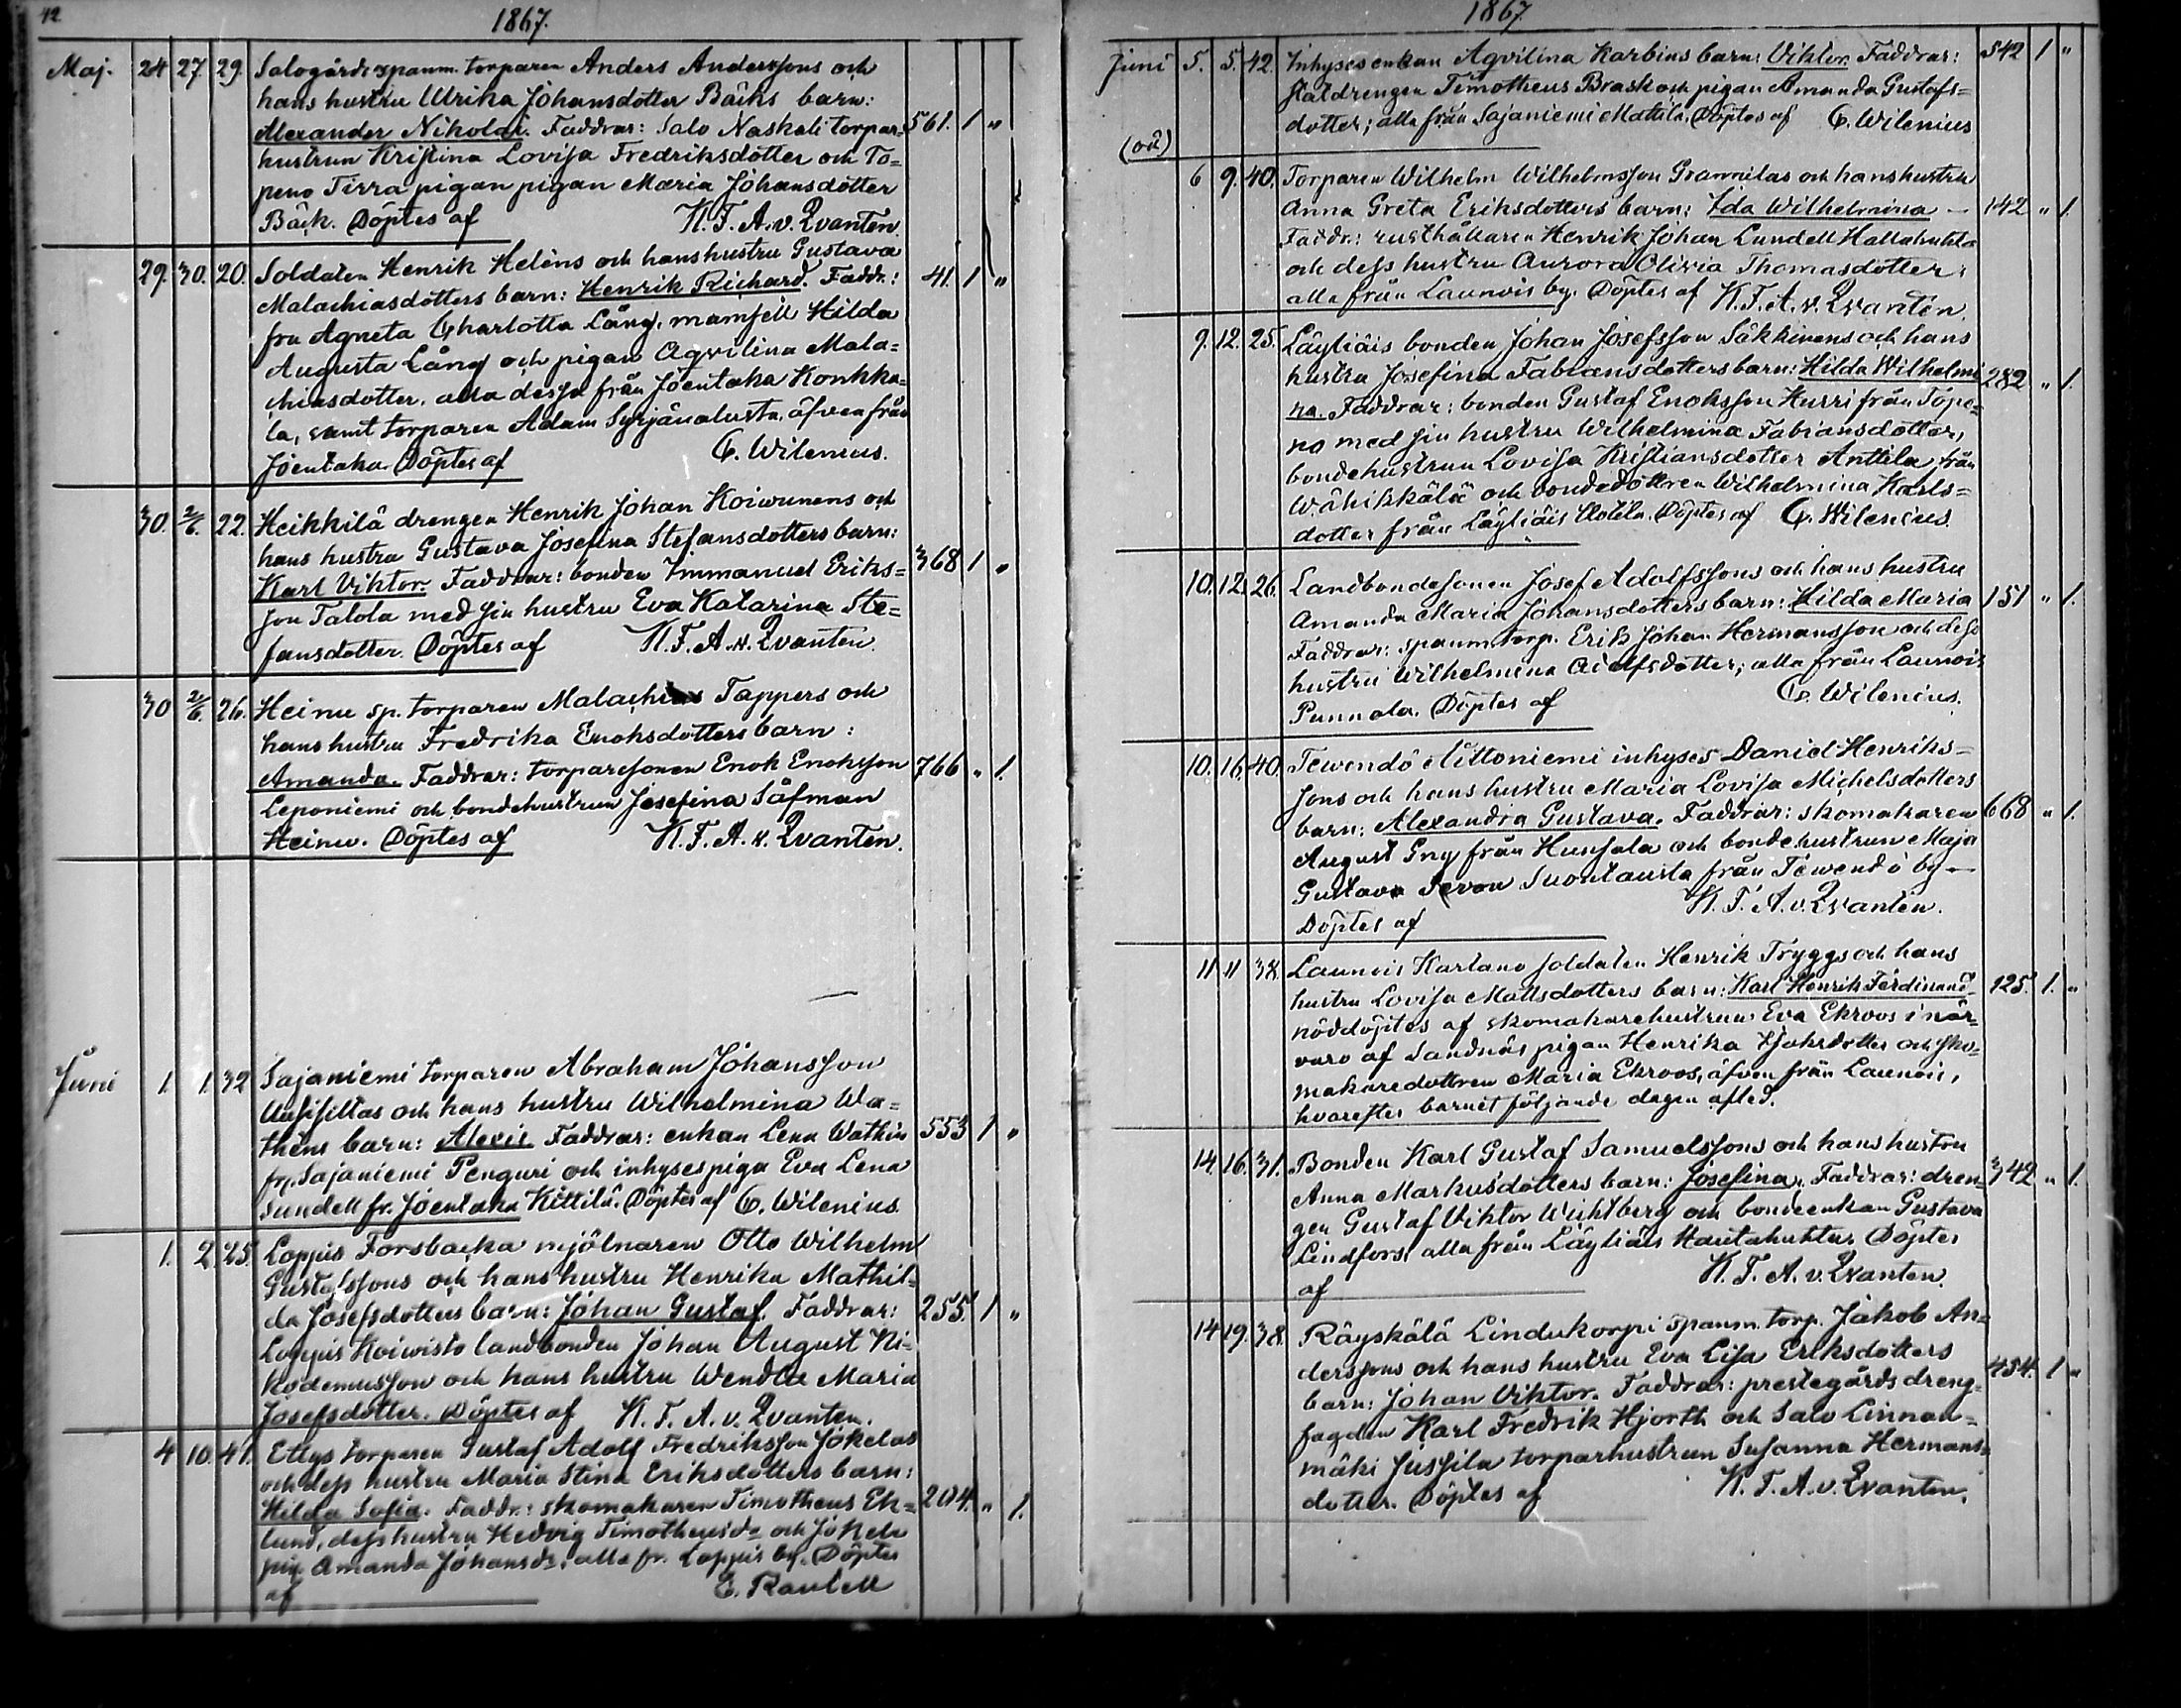 42
1867.
Maj. 24 27. 29. Salogårds spanm. torparen Anders Anderssons och
hans hustru Ulrika Johansdotter Bäcks barn:
Alexander Nikolai. Faddrar: Salo Naskali torpar= 561. 1 "
hustrun Kristina Lovisa Fredriksdotter och To=
peno Tirra pigan pigan Maria Johansdotter
Bäck. Döptes af K. F. A. v. Qvanten.
29. 30. 20. Soldaten Henrik Heléns och hans hustru Gustava
Malachiasdotters barn: Henrik Richard. Faddr.: 41. 1 "
fru Agneta Charlotta Lång, mamsell Hilda
Augusta Lång och pigan Aqvilina Mala=
chiasdotter, alla dessa från Joentaka Konkka=
la, samt torparen Adam Syrjänalusta, äfven från
Joentaka. Döptes af C. Wilenius.
30. 2/6. 22. Heikkilä drengen Henrik Johan Koiwunens och
hans hustru Gustava Josefina Stefansdotters barn:
Karl Viktor. Faddrar: bonden Immanuel Eriks= 368 1 "
son Talola med sin hustru Eva Katarina Ste=
fansdotter. Döptes af K. F. A. v. Qvanten.
30 2/6. 26. Heinu sp. torparen Malachias Tappers och
hans hustru Fredrika Enoksdotters barn:
Amanda. Faddrar: torparesonen Enok Enoksson 766 " 1.
Leponiemi och bondehustrun Josefina Säfman
Heinu. Döptes af K. F. A. v. Qvanten.
Juni 1. 1. 32 Sajaniemi torparen Abraham Johansson
Uusisiltas och hans hustru Wilhelmina Wa=
théns barn: Alexis. Faddrar: enkan Lena Wathén 553 1 "
fr. Sajaniemi Penguri och inhysespiga Eva Lena
Sundell fr. Joentaka Kittilä. Döptes af C. Wilenius.
1. 2. 25. Loppis Forsbacka mjölnaren Otto Wilhelm
Gustafssons och hans hustru Henrika Mathil=
da Josefsdotters barn: Johan Gustaf. Faddrar: 255. 1 "
Loppis Koiwisto landbonden Johan August Ni=
kodemusson och hans hustru Wendla Maria
Josefsdotter. Döptes af K. F. A. v. Qvanten.
4 10. 41. Etlys torparen Gustaf Adolf Fredriksson Jokelas
och dess hustru Maria Stina Eriksdotters barn:
Hilda Sofia. Faddr.: skomakaren Timotheus Ek= 204. " 1.
lund, dess hustru Hedvig Timotheusdr och Jokela
pig. Amanda Johansdr, alla fr. Loppis by. Döptes
af E. Rautell
1867
Juni 5. 5. 42. Inhysesenkan Aqvilina Karbins barn: Viktor. Faddrar: 542 1 "
statdrengen Timotheus Brask och pigan Amanda Gustafs=
dotter; alla från Sajaniemi Mattila. Döptes af C. Wilenius
(oä)
6 9. 40. Torparen Wilhelm Wilhelmsson Grannilas och hans hustru
Anna Greta Eriksdotters barn: Ida Wilhelmina — 142 " 1.
Faddr.: rusthållaren Henrik Johan Lundell Hallahuhta
och dess hustru Aurora Olivia Thomasdotter;
alla från Launois by. Döptes af K. F. A. v. Qvanten.
9. 12. 25. Läyliäis bonden Johan Josefsson Säkkinens och hans
hustru Josefina Fabiansdotters barn: Hilda Wilhelmi 282 " 1.
na. Faddrar: bonden Gustaf Enoksson Hurri från Tope=
no med sin hustru Wilhelmina Fabiansdotter,
bondehustrun Lovisa Kristiansdotter Anttila från
Wähikkälä och bondedottren Wilhelmina Karls=
dotter från Läyliäis Uotila. Döptes af C. Wilenius.
10. 12. 26. Landbondesonen Josef Adolfssons och hans hustru
Amanda Maria Johansdotters barn: Hilda Maria 151 " 1.
Faddrar: spanm. torp. Erik Johan Hermansson och dess
hustru Wilhelmina Adolfsdotter; alla från Launois
Punnala. Döptes af C. Wilenius.
10. 16. 40. Tewendö Ålttoniemi inhyses Daniel Henriks=
sons och hans hustru Maria Lovisa Michelsdotters
barn: Alexandra Gustava. Faddrar: skomakaren 668 " 1.
August Gny från Hunsala och bondehustrun Maja
Gustava Sevon Suontausta från Tewendö by —
Döptes af K. F. A. v. Qvanten.
11 11 38. Launois Kartano soldaten Henrik Tryggs och hans
hustru Lovisa Mattsdotters barn: Karl Henrik Ferdinand 125. 1. "
nöddöptes af skomakarehustrun Eva Ekroos i när=
varo af Sandnäs pigan Henrika Isaksdotter och sko=
makaredottren Maria Ekroos, äfven från Launois,
hvarefter barnet följande dagen afled.
14. 16. 31. Bonden Karl Gustaf Samuelssons och hans hustru
Anna Markusdotters barn: Josefina. Faddrar: dren= 342 " 1.
gen Gustaf Viktor Wichtberg och bondeenkan Gustava
Lindfors, alla från Läyliäis Hautahuhta. Döptes
af K. F. A. v. Qvanten.
14 19. 38. Räyskälä Lindukorpi spanm. torp. Jakob An=
derssons och hans hustru Eva Lisa Eriksdotters
barn: Johan Viktor. Faddrar: prestegårds dreng= 454. 1 "
fogden Karl Fredrik Hjorth och Salo Linnan=
mäki Jussila torparhustrun Susanna Hermans=
dotter. Döptes af K. F. A. v. Qvanten.